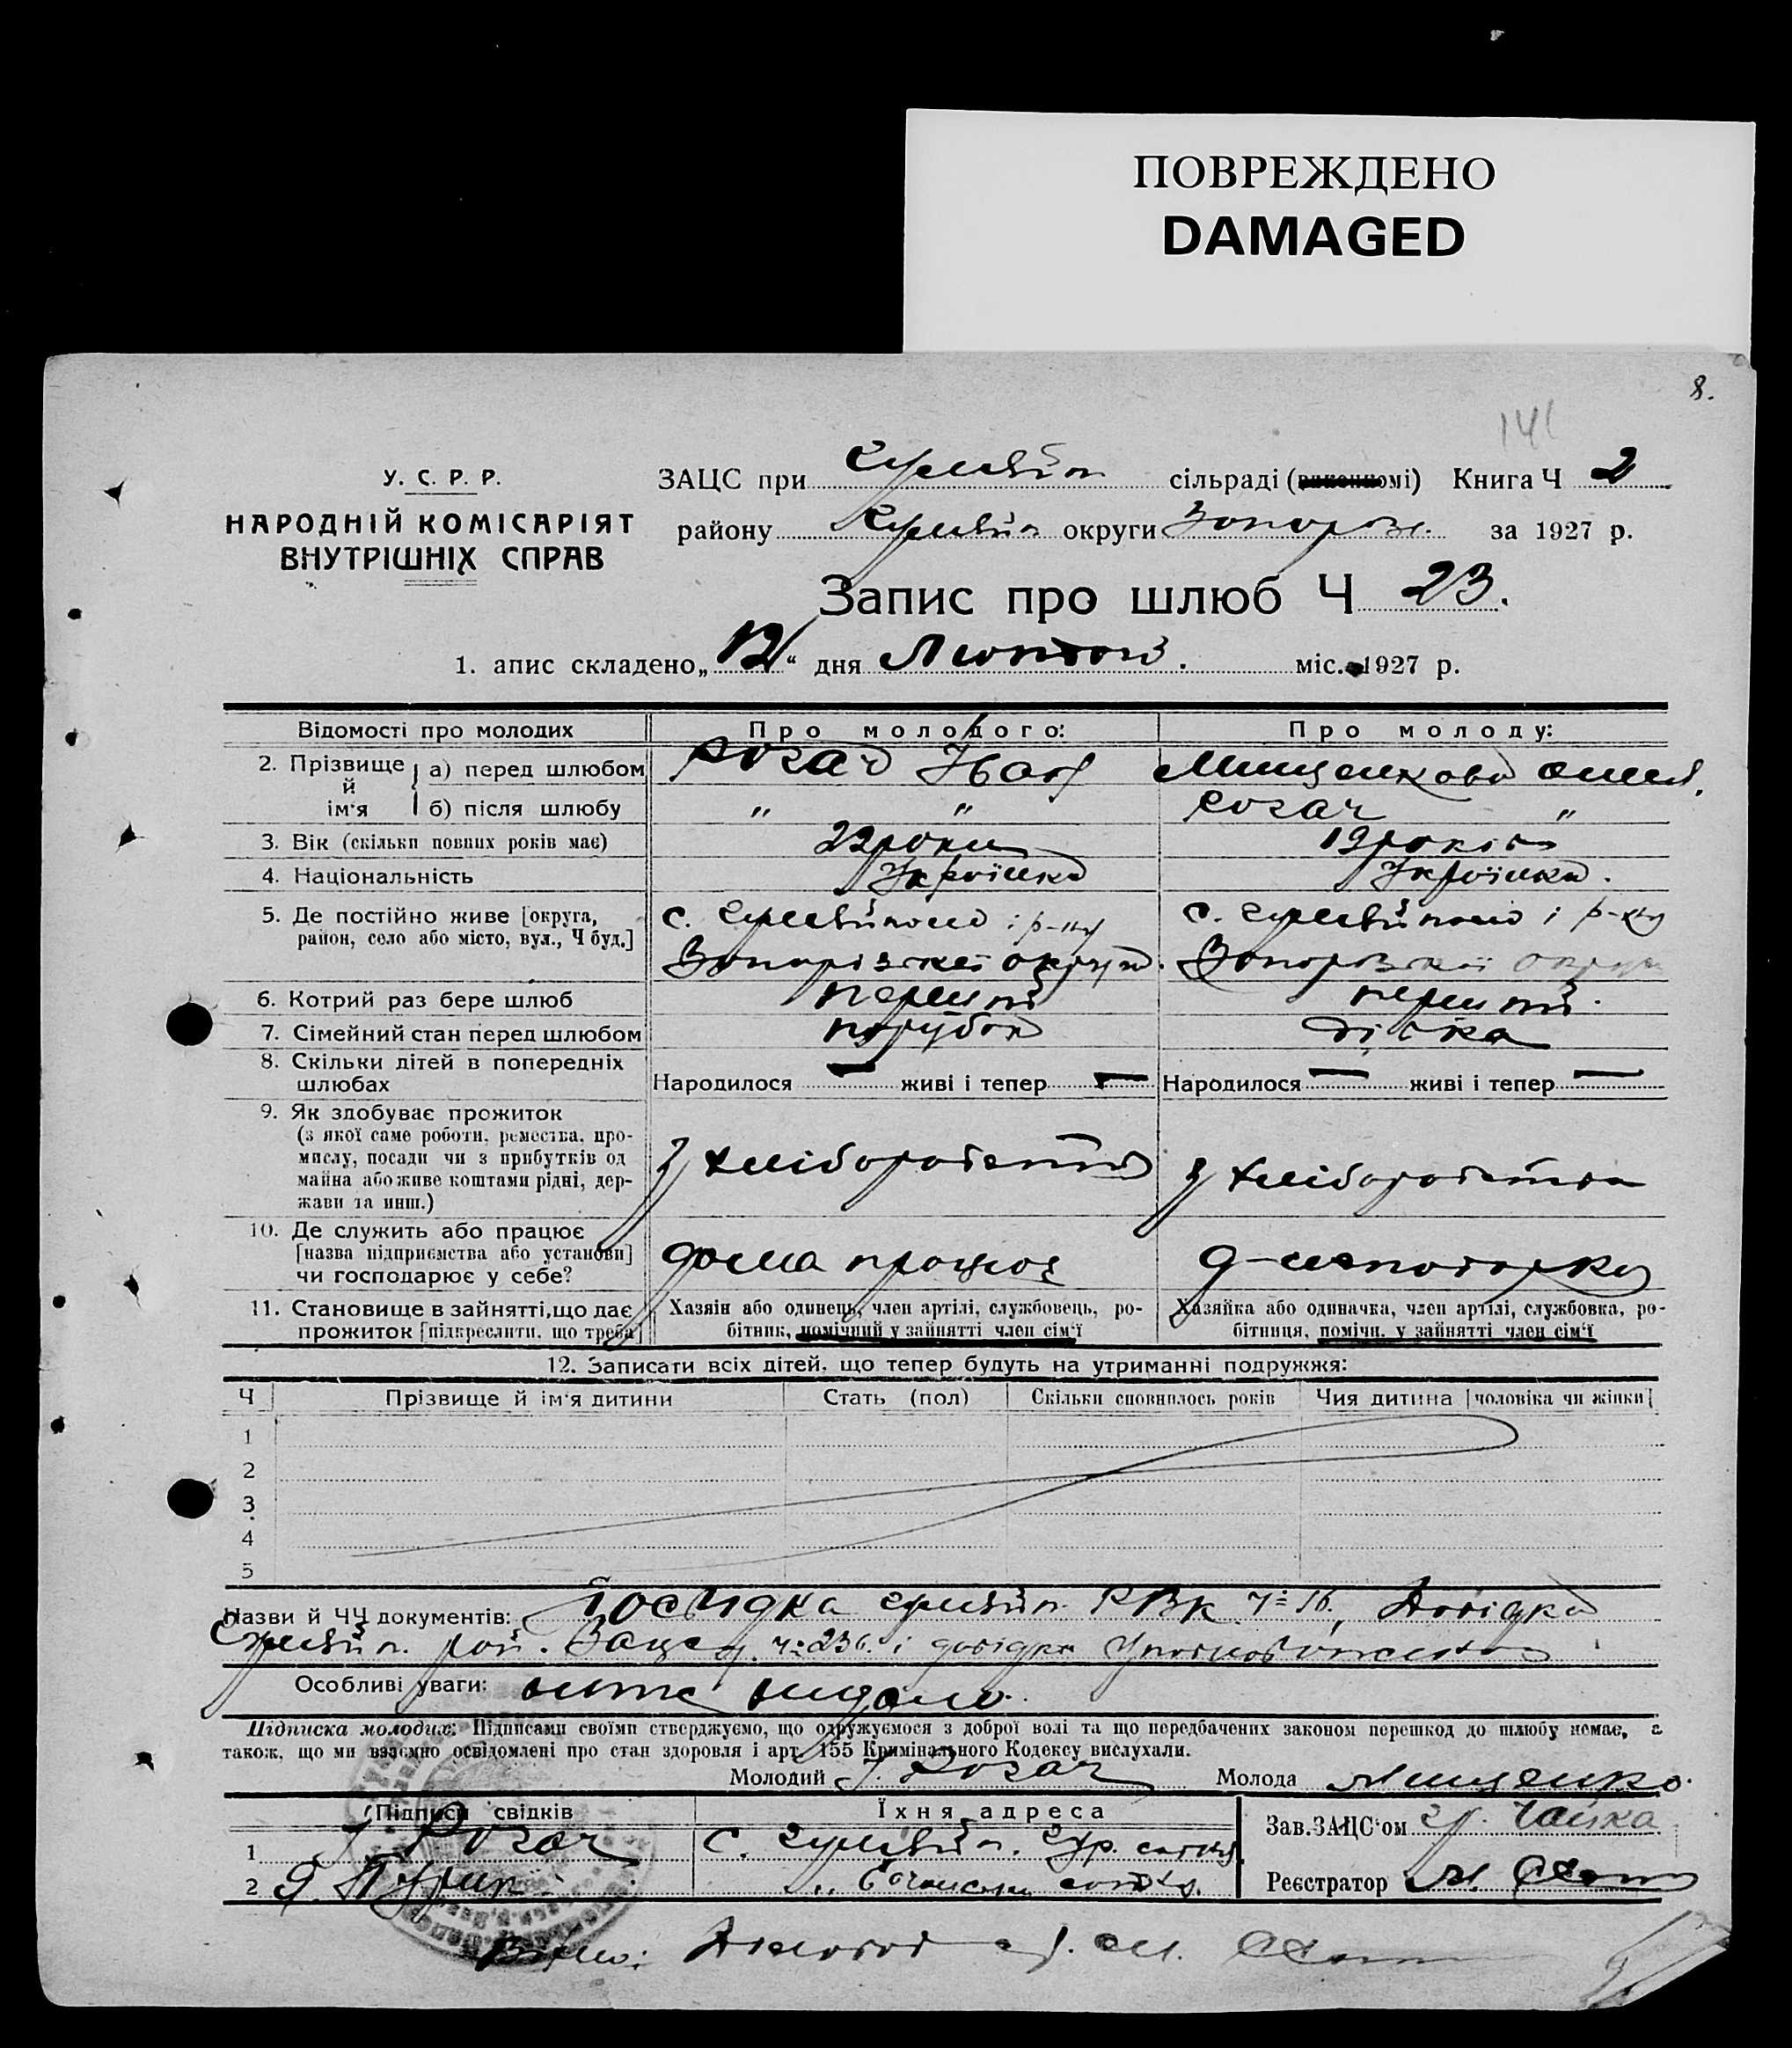 ПОВРЕЖДЕНО
DAMAGED
8.
141
У. С. Р. Р.
НАРОДНІЙ КОМІСАРІЯТ
ВНУТРІШНІХ СПРАВ
ЗАЦС при сільраді (виконкомі) Книга Ч 2
району округи Запоріж. за 1927 р.
Запис про шлюб Ч 23.
1. апис складено „12“ дня Лютого міс. 1927 р.
Відомості про молодих
Про молодого:
Про молоду:
2. Прізвище й ім'я
а) перед шлюбом
Рогач Іван
Мищенкова
б) після шлюбу
" "
Рогач "
3. Вік (скільки повних років має)
22 роки
19 років
4. Національність
Українка
Українка.
5. Де постійно живе [округа,
район, село або місто, вул., Ч буд.]
с. і р-ну
Запорізскої округи.
с. і р-ну
Запорізскої округи
6. Котрий раз бере шлюб
перший
перший.
7. Сімейний стан перед шлюбом
парубок
дівка
8. Скільки дітей в попередніх
шлюбах
Народилося — живі і тепер —
Народилося — живі і тепер —
9. Як здобуває прожиток
(з якої саме роботи, ремества, про-
мислу, посади чи з прибутків од
майна або живе коштами рідні, дер-
жави та инш.)
З хліборобства
З хліборобства
10. Де служить або працює
[назва підприємства або установи]
чи господарює у себе?
дома працює
д-господарка
11. Становище в зайнятті, що дає
прожиток [підкреслити, що треба]
Хазяін або одинець, член артілі, службовець, ро-
бітник, помічний у зайнятті член сім'ї
Хазяйка або одиначка, член артілі, службовка, ро-
бітниця, помічн. у зайнятті член сім'ї
12. Записати всіх дітей, що тепер будуть на утриманні подружжя:
Ч
Прізвище й ім'я дитини
Стать (пол)
Скільки сповнилось років
Чия дитина [чоловіка чи жінки]
1
2
3
4
5
Назви й ЧЧ документів: Посвідка РВК ч 16., Довідка
рай. Зацсу ч 236. і довідка
Особливі уваги: видано.
Підписка молодих: Підписами своїми стверджуємо, що одружуємося з доброї волі та що передбачених законом перешкод до шлюбу немає, а
також, що ми взаємно освідомлені про стан здоровля і арт. 155 Кримінального Кодексу вислухали.
Молодий І. Рогач Молода Мищенко.
Підписи свідків
Їхня адреса
1 Рогач с. сотня
2 " сотня.
Зав. ЗАЦС'ом Чайка
Реєстратор М.
Вірно: